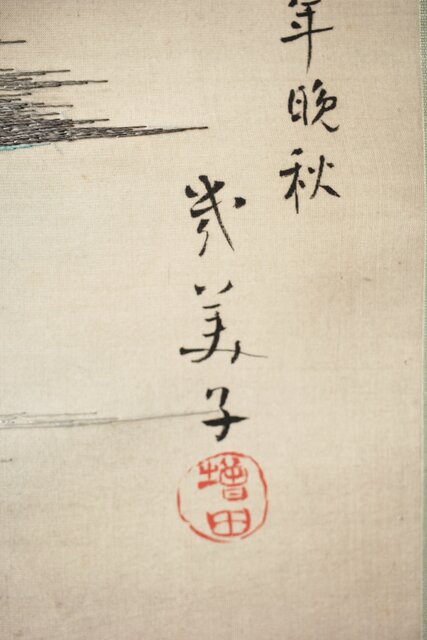 年晩秋
幾美子
増田